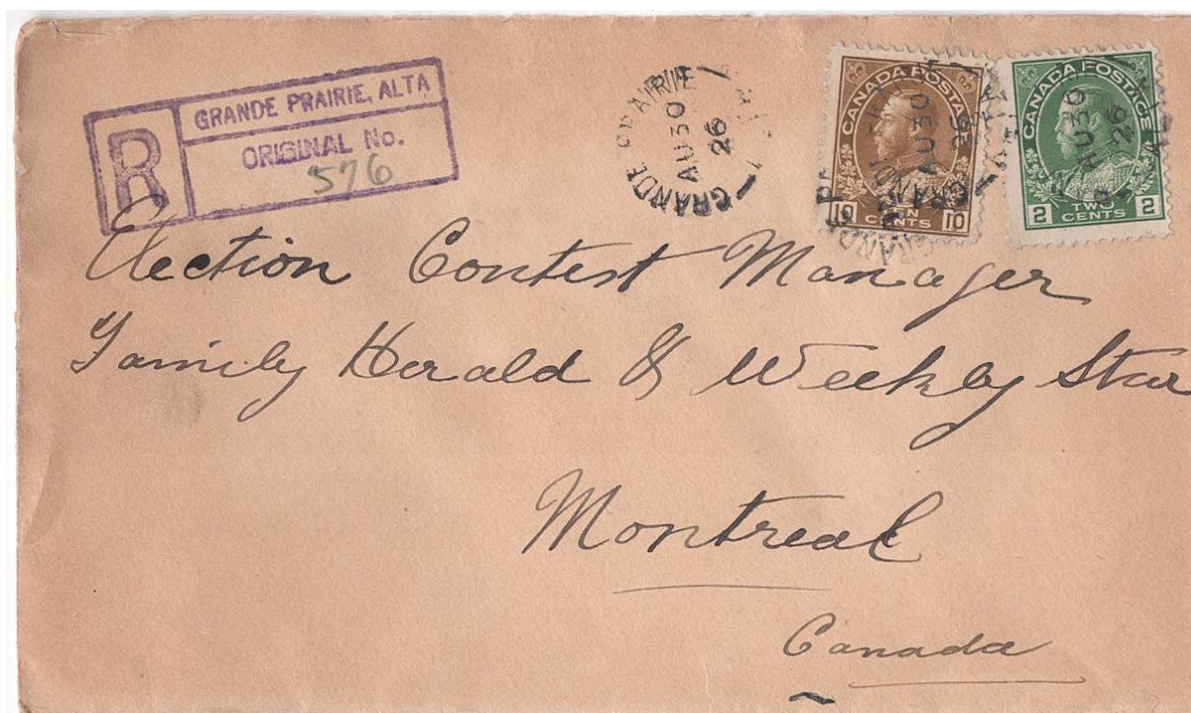 R
GRANDE PRAIRIE, ALTA
ORIGINAL No.
576
GRANDE PRAIRIE
AU 30
26
CANADA POSTAGE
10 TEN CENTS 10
CANADA POSTAGE
AU 30
26
2 TWO CENTS 2
Election Contest Manager
Family Herald & Weekly Star
Montreal
Canada